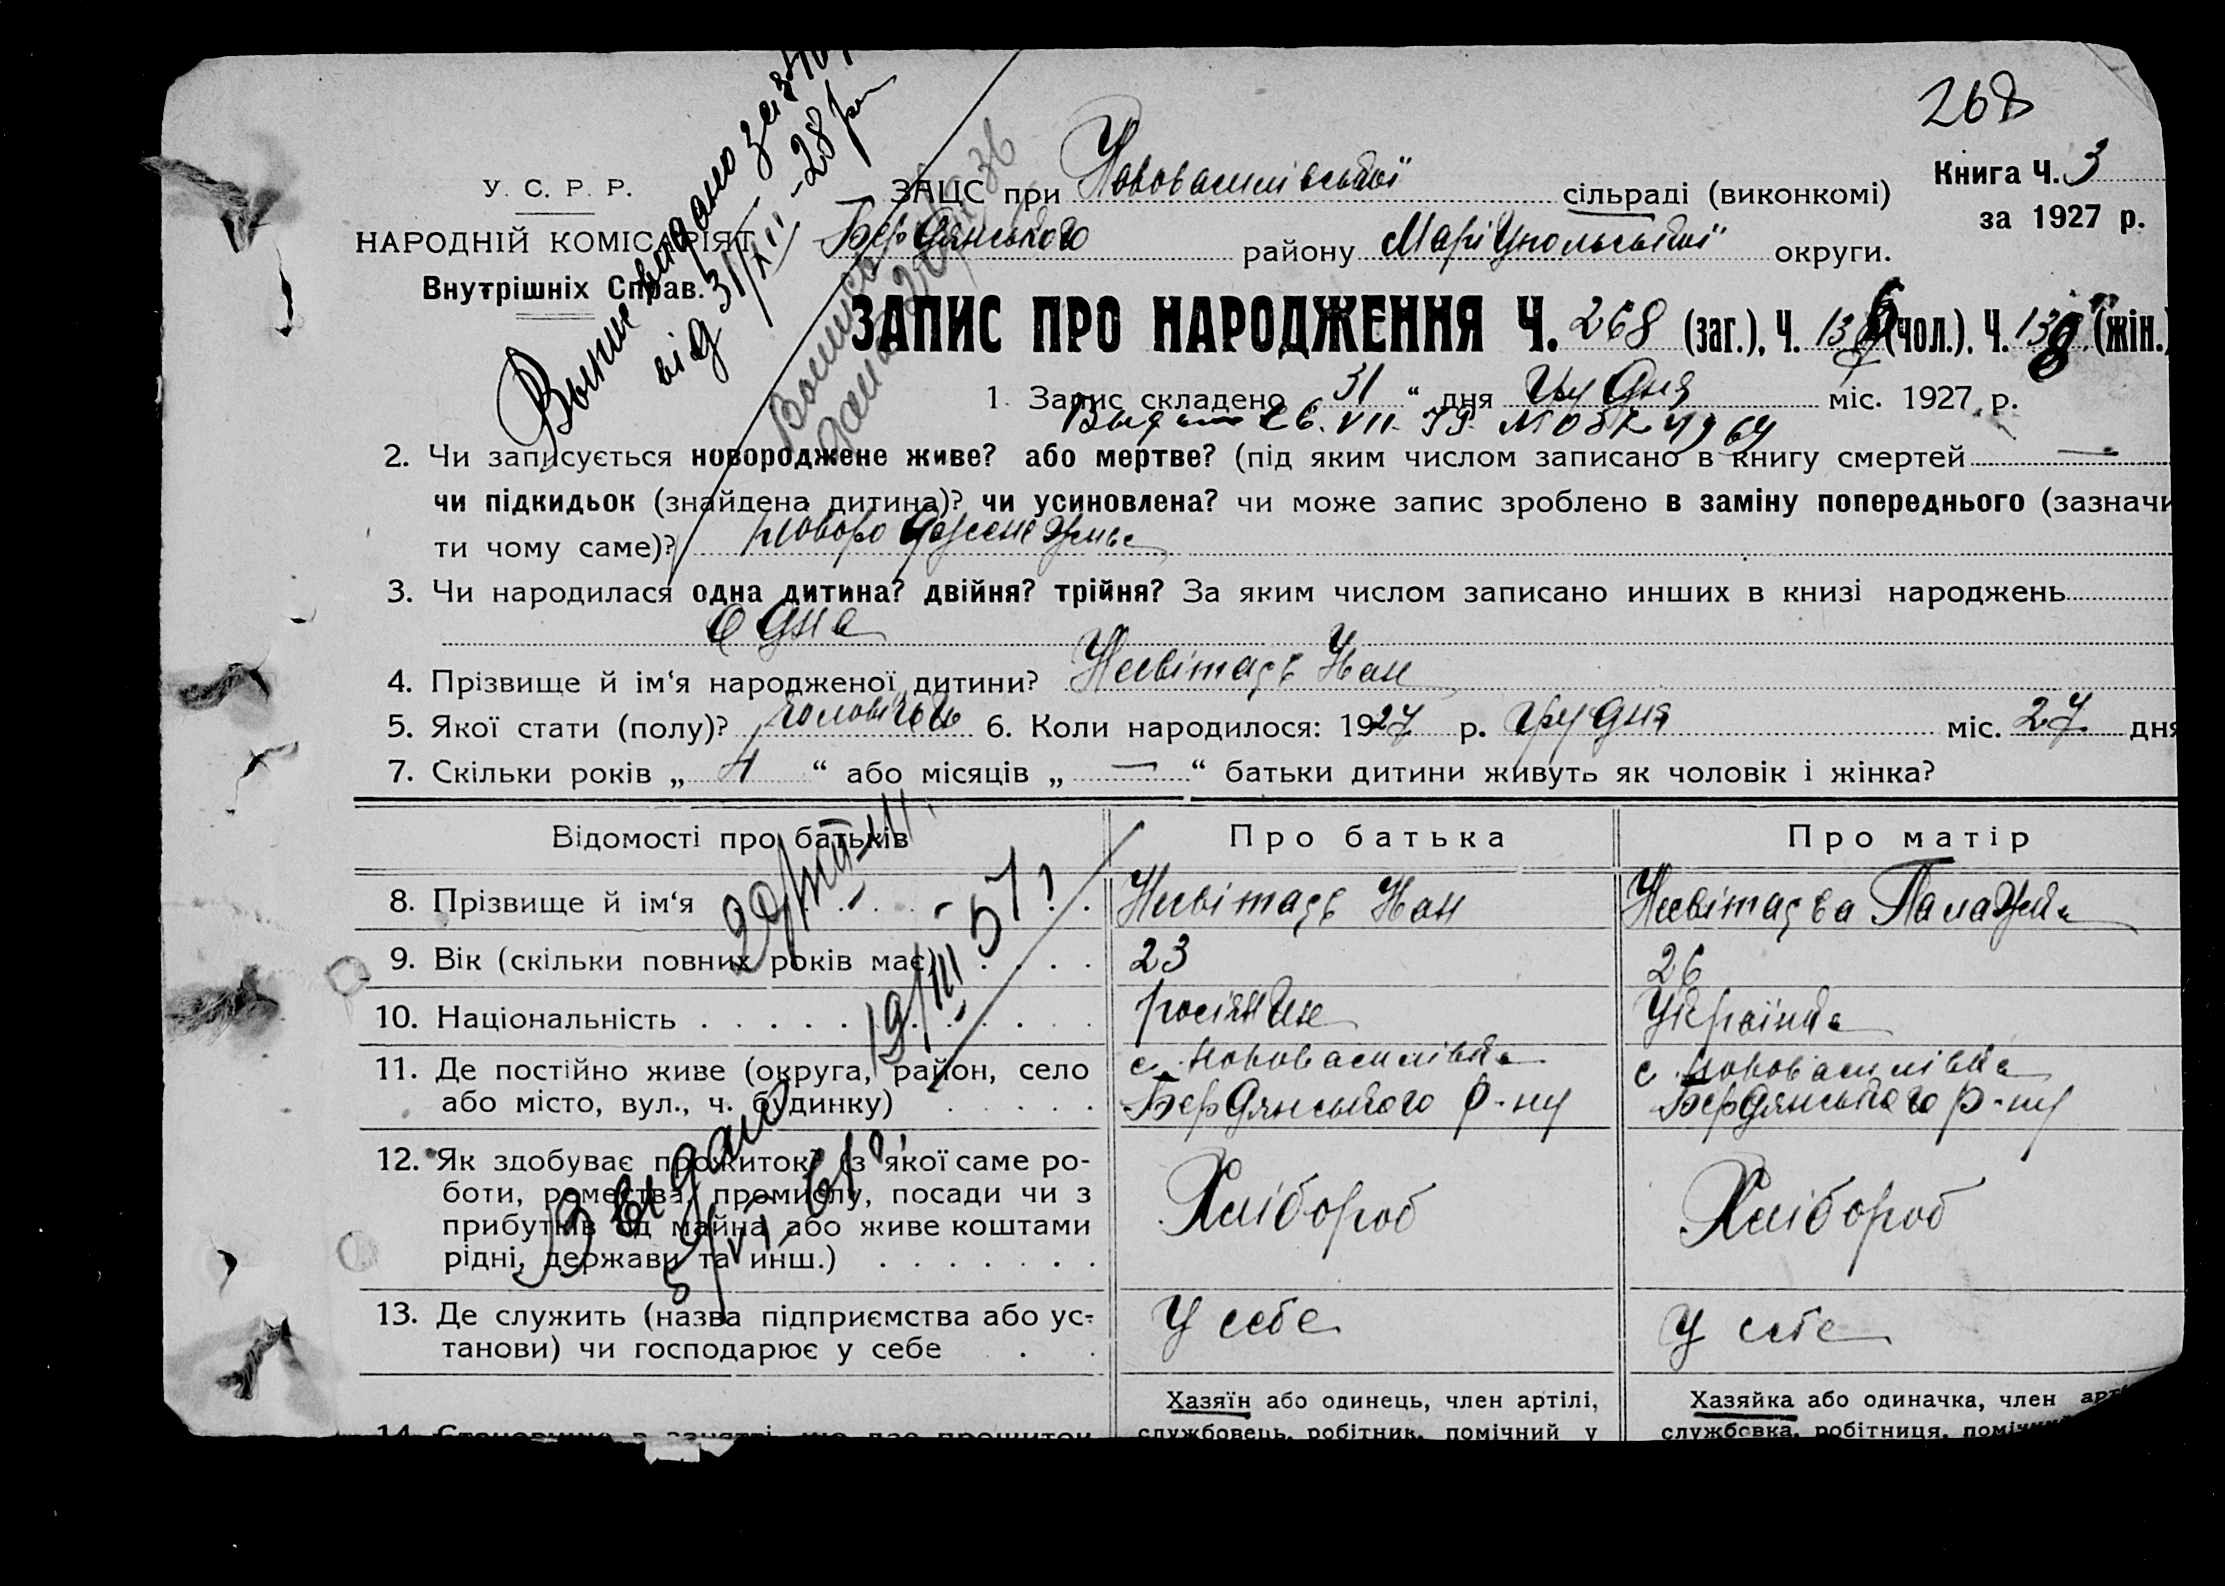 268
Книга Ч. 3
за 1927 р.
У. С. Р. Р.
НАРОДНІЙ КОМІСАРІЯТ
Внутрішніх Справ.
ЗАЦС при Нововасилівській сільраді (виконкомі)
Бердянського району Маріупольської округи.
ЗАПИС ПРО НАРОДЖЕННЯ Ч. 268 (заг.), Ч. 136 (чол.), Ч. (жін.)
1. Запис складено 31 “ дня грудня міс. 1927 р.
2. Чи записується новороджене живе? або мертве? (під яким числом записано в книгу смертей —
чи підкидьок (знайдена дитина)? чи усиновлена? чи може запис зроблено в заміну попереднього (зазначи
ти чому саме)? новороджене живе
3. Чи народилася одна дитина? двійня? трійня? За яким числом записано инших в книзі народжень
одна
4. Прізвище й ім‘я народженої дитини? Несвітаєв Іван
5. Якої стати (полу)? чоловічої 6. Коли народилося: 1927 р. грудня міс. 27 дня
7. Скільки років „ 4 “ або місяців „ — “ батьки дитини живуть як чоловік і жінка?
Відомості про батьків Про батька Про матір
8. Прізвище й ім‘я Несвітаєв Іван Несвітаєва Палажка
9. Вік (скільки повних років має) 23 26
10. Національність росіянин Українка
11. Де постійно живе (округа, район, село с. Нововасилівка с. Нововасилівка
або місто, вул., ч. будинку) Бердянського р-ну Бердянського р-ну
12. Як здобуває прожиток? (з якої саме ро-
боти, ремества, промислу, посади чи з Хлібороб Хлібороб
прибутків від майна або живе коштами
рідні, держави та инш.)
13. Де служить (назва підприємства або ус- У себе У себе
танови) чи господарює у себе
Хазяїн або одинець, член артілі, Хазяйка або одиначка, член арті
службовець, робітник, помічний у службовка, робітниця, помічний
14. Становище в занятті, що дає прожиток
Видано
5/VI 61
19/III 57
від 31/XII-28 р